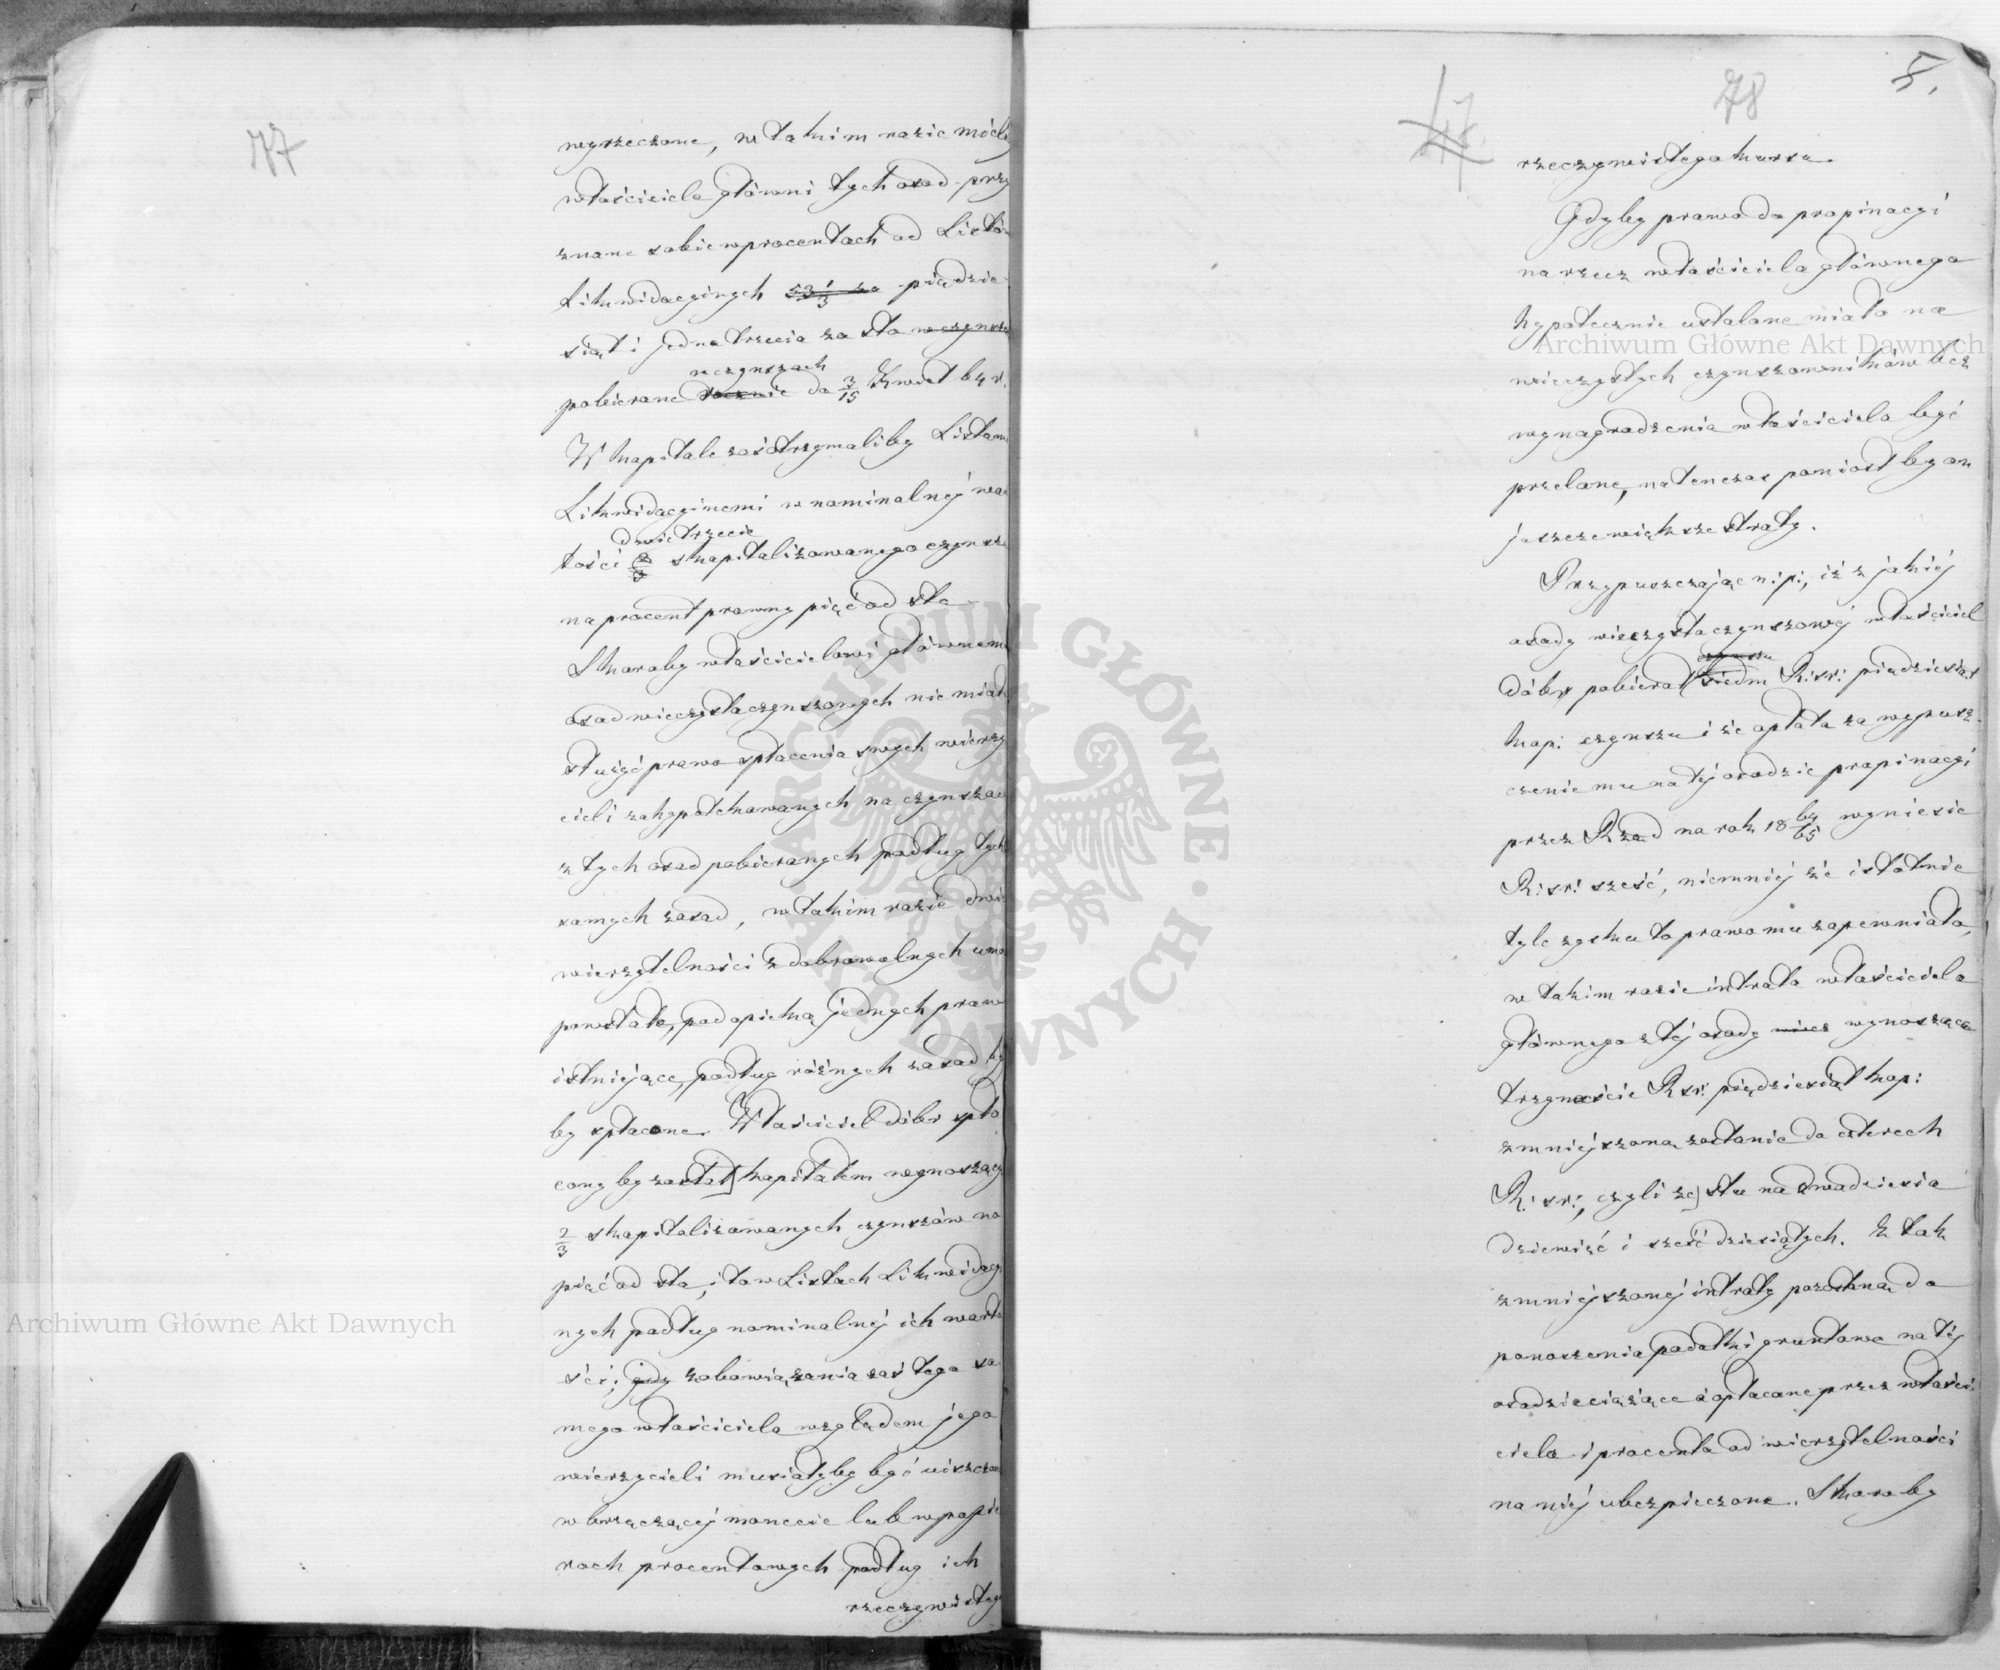 77
wyrzeczone, w takim razie mieli
właściciele główni tych osad przy
znane sobie w procentach od Listów
Likwidacyjnych 53 1/3 za pięćdzie
siąt i jedna trzecia za sto w czynszu
w czynszach
pobierane rocznie do 3/15 Kwiet b. r.
W kapitale zaś otrzymaliby Listami
Likwidacyjnemi w nominalnéj war
dwie trzecie
tości 2/3 skapitalizowanego czynszu
na procent prawny pięć od sta
Skoroby właścicielowi głównemu
osad wieczysto czynszowych nie miało
służyć prawo spłacenia swych wierzy
cieli zahypotekowanych na czynszach
z tych osad pobieranych podług tych
samych zasad, w takim razie dwie
wierzytelności z dobrowolnych umów
powstałe, pod opieką jednych praw
istniejące, podług różnych zasad by
by spłacone. Właściciel dóbr spła
cony by został kapitałem wynoszący
2/3 skapitalizowanych czynszów na
pięć od sta, i to w Listach Likwidacyj
nych podług nominalnéj ich warto
ści; gdy zobowiązania zaś tego sa
mego właściciela względem jego
wierzycieli musiałyby być uiszczone
w brzęczącéj monecie lub w papie
rach procentowych podług ich
rzeczywistego
47.
78
5.
rzeczywistego kursu.
Gdyby prawo do propinacyi
na rzecz właściciela głównego
hypotecznie ustalone miało na
wieczystych czynszowników bez
wynagrodzenia właściciela być
przelane, natenczas poniosłby on
jeszcze większe straty.
Przypuszczając n: p:, iż z jakiéj
osady wieczysto czynszowéj właściciel
czynszu
dóbr pobierał siedm R: sr: pięćdziesiąt
kop: czynszu i że opłata za wypusz
czenie mu na téj osadzie propinacyi
przez Rząd na rok 18 64/65 wyniesie
R: sr: sześć, niemniéj że istotnie
tyle zysku to prawo mu zapewniało,
w takim razie intrata właściciela
głównego z téj osady wynosząca
trzynaście R sr: pięćdziesiąt kop:
zmniejszoną zostanie do czterech
R: sr:, czyli ze stu na dwadzieścia
dziewięć i sześć dziesiątych. Z tak
zmniejszonéj intraty pozostaną do
ponoszenia podatki gruntowe na téj
osadzie ciążące a opłacane przez właści
ciela i procenta od wierzytelności
na niéj ubezpieczone. Skoroby
Archiwum Główne Akt Dawnych
Archiwum Główne Akt Dawnych
ARCHIWUM GŁÓWNE AKT DAWNYCH